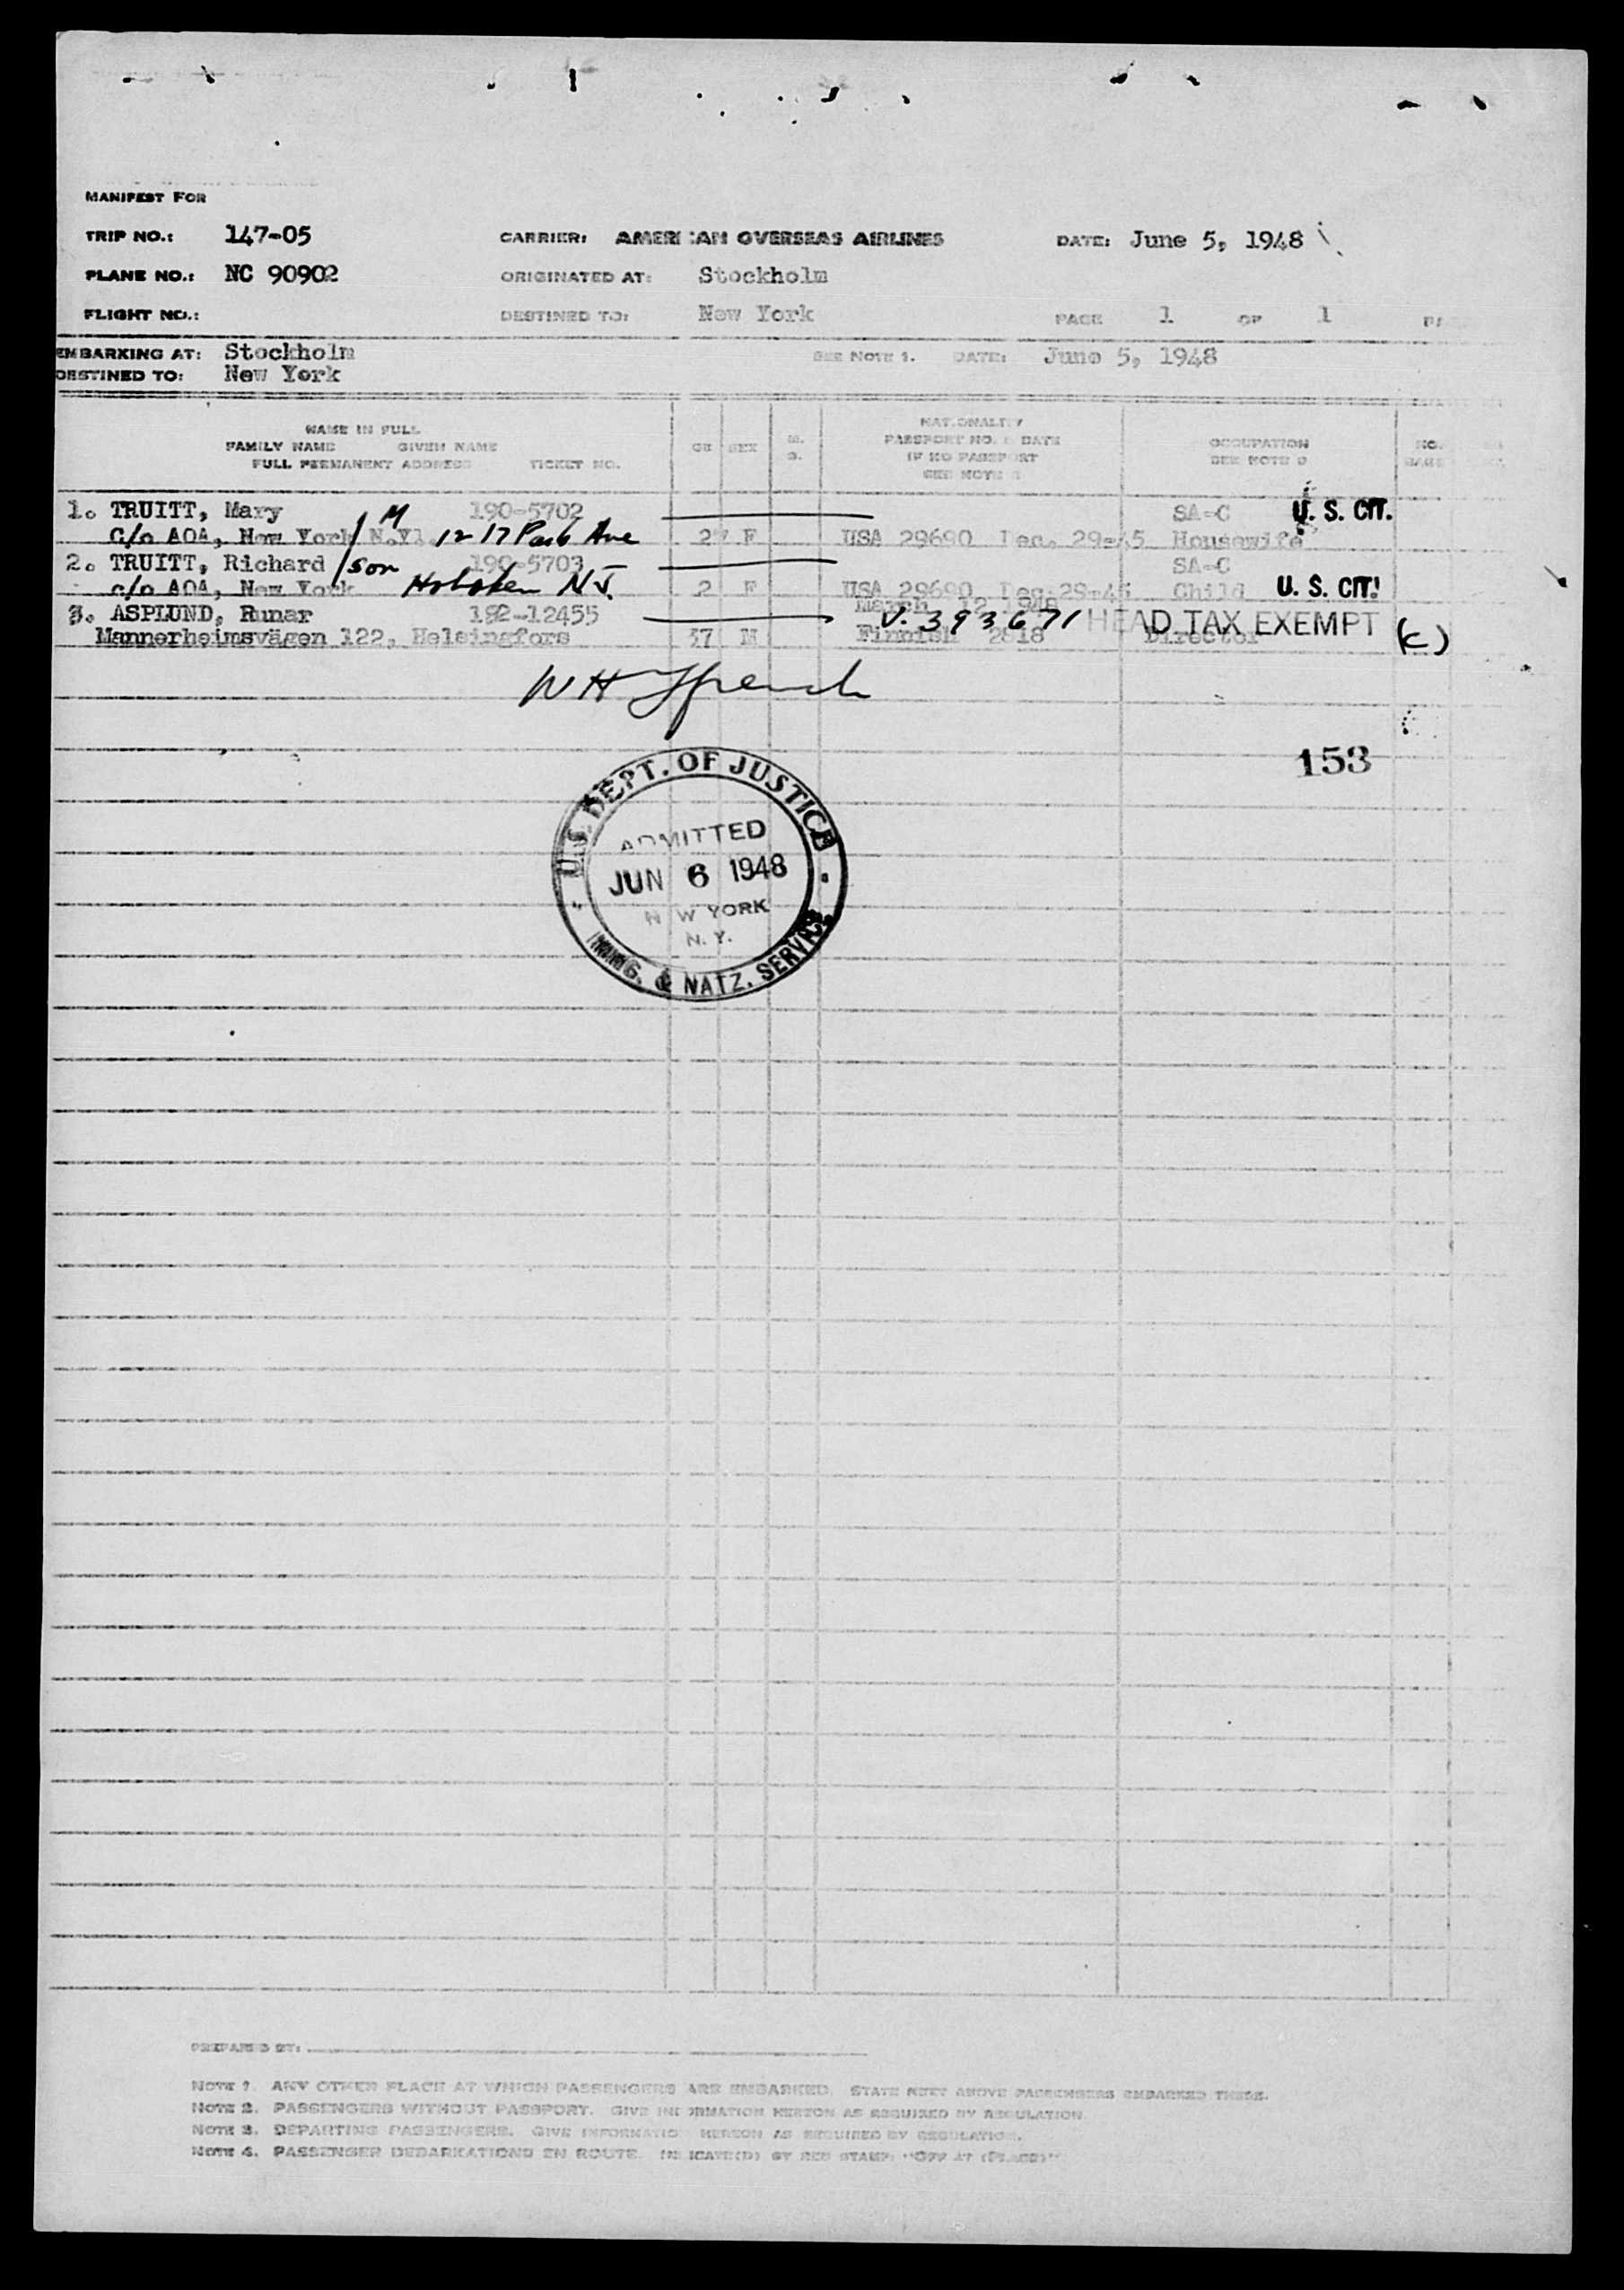 MANIFEST FOR
TRIP NO.: 147-05 CARRIER: AMERICAN OVERSEAS AIRLINES DATE: June 5, 1948
PLANE NO.: NC 90902 ORIGINATED AT: Stockholm
FLIGHT NO.: DESTINED TO: New York PAGE 1 OF 1
EMBARKING AT: Stockholm SEE NOTE 1. DATE: June 5, 1948
DESTINED TO: New York
NAME IN FULL
FAMILY NAME GIVEN NAME
FULL PERMANENT ADDRESS TICKET NO.
SEX
NATIONALITY
PASSPORT NO. & DATE
IF NO PASSPORT
SEE NOTE 2
OCCUPATION
SEE NOTE 3
NO.
1. TRUITT, Mary / M 190-5702 SA-C U. S. CIT.
C/o AOA, New York N.Y. 1217 Park Ave 27 F USA 29690 Dec. 29-45 Housewife
2. TRUITT, Richard / son 190-5703 SA-C
c/o AOA, New York Hoboken N.J. 2 F USA 29690 Dec. 29-45 Child U. S. CIT.
3. ASPLUND, Runar 192-12455 March 12 1948 V. 393671 HEAD TAX EXEMPT (c)
Mannerheimsvägen 122, Helsingfors 57 M Finnish 2818 Director
153
U.S. DEPT. OF JUSTICE
ADMITTED
JUN 6 1948
NEW YORK
N. Y.
IMMIG. & NATZ. SERVICE
PREPARED BY:
NOTE 1. ANY OTHER PLACE AT WHICH PASSENGERS ARE EMBARKED, STATE NEXT ABOVE PASSENGERS EMBARKED THERE.
NOTE 2. PASSENGERS WITHOUT PASSPORT. GIVE INFORMATION HEREON AS REQUIRED BY REGULATION.
NOTE 3. DEPARTING PASSENGERS. GIVE INFORMATION HEREON AS REQUIRED BY REGULATION.
NOTE 4. PASSENGER DEBARKATIONS EN ROUTE. INDICATE(D) BY RED STAMP: "OFF AT (PLACE)"